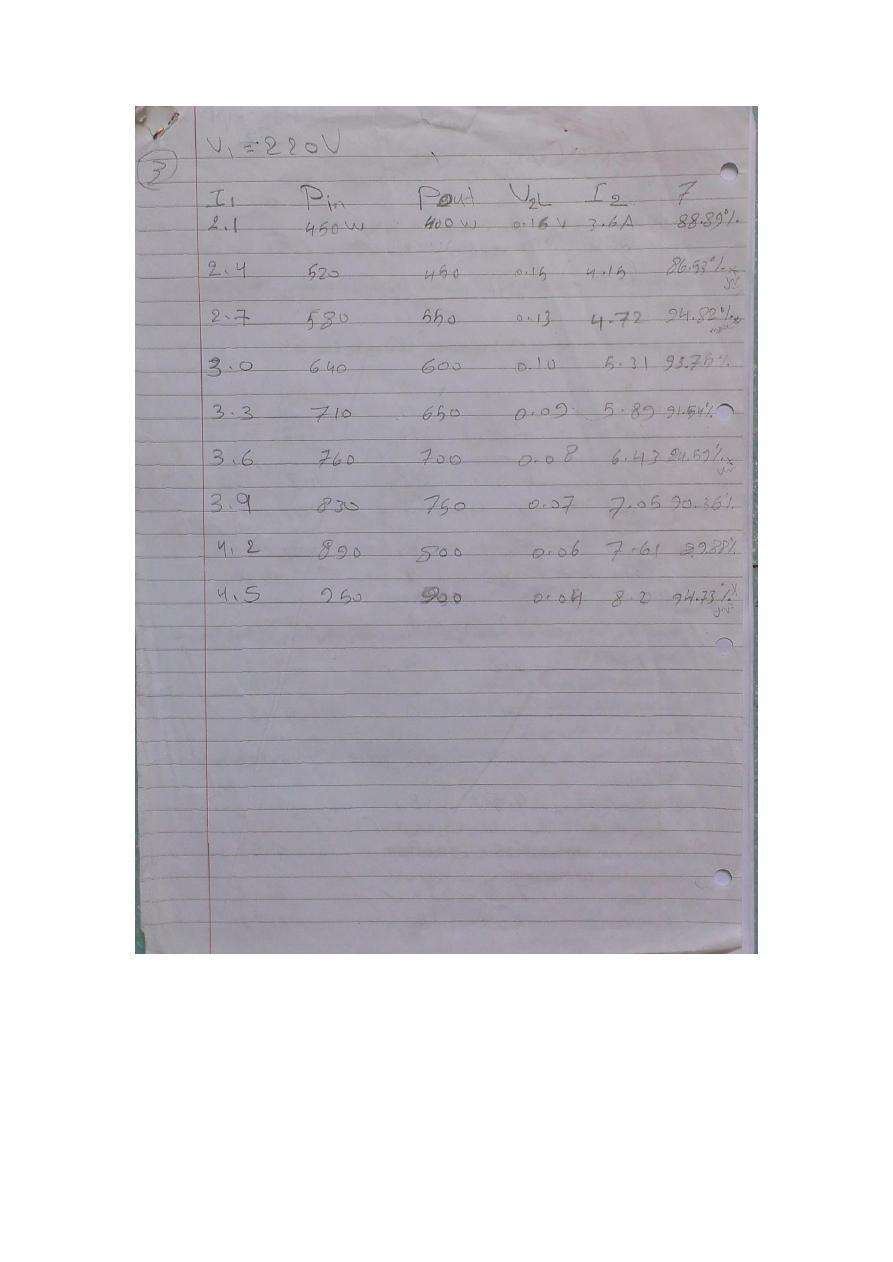 V1 = 220V
3
I1 Pin Pout V2L I2 η
2.1 450W 400W 0.16V 3.6A 88.89%
2.4 520 450 0.15 4.15 86.53%
2.7 580 550 0.13 4.72 94.82%
3.0 640 600 0.10 5.31 93.75%
3.3 710 650 0.09 5.89 91.54%
3.6 760 700 0.08 6.43
3.9 830 750 0.07 7.05 90.36%
4.2 890 0.06 7.61 89.88%
4.5 950 900 0.04 8.2 94.73%